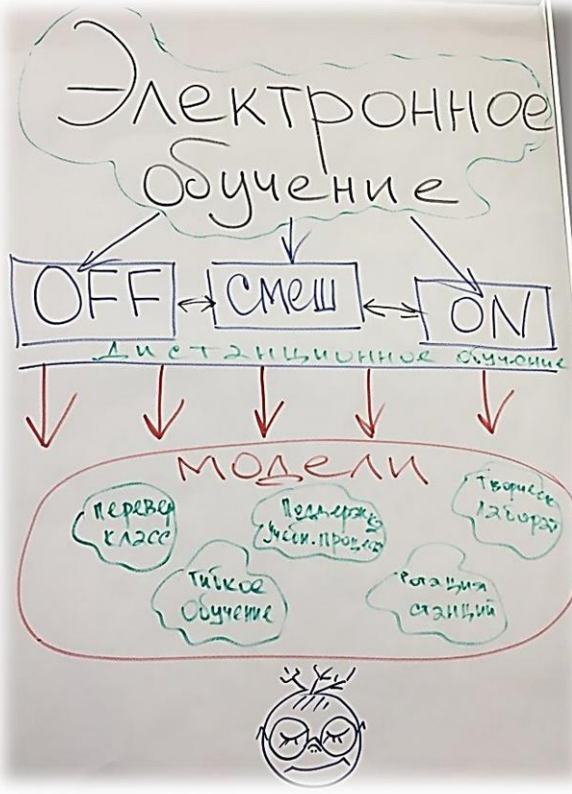 Электронное
обучение
OFF
смеш
ON
Дистанционное обучение
модели
перевер
класс
Поддержка
учебн. процесса
Творческ
лаборат
Гибкое
обучение
Ротация
станций